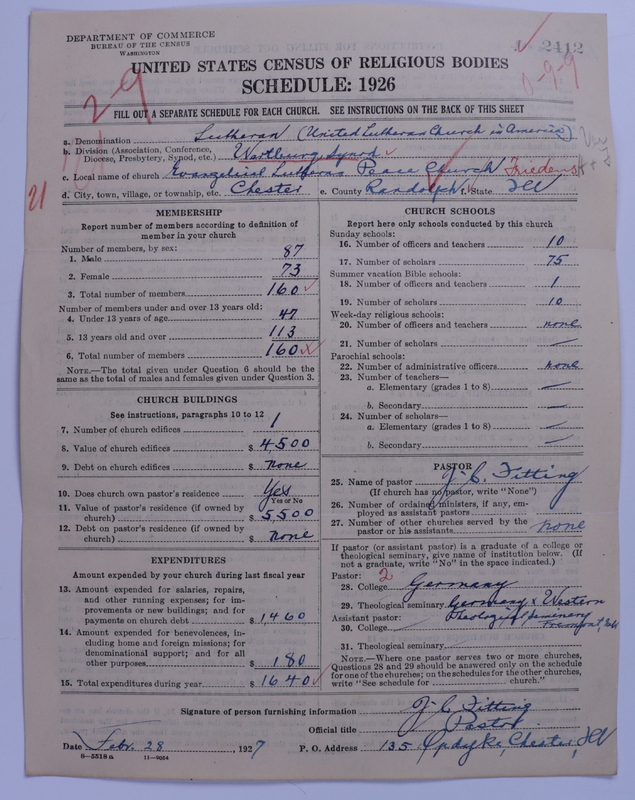 DEPARTMENT OF COMMERCE
BUREAU OF THE CENSUS
WASHINGTON
2412
UNITED STATES CENSUS OF RELIGIOUS BODIES
SCHEDULE: 1926
2-9
0-9-9
FILL OUT A SEPARATE SCHEDULE FOR EACH CHURCH. SEE INSTRUCTIONS ON THE BACK OF THIS SHEET
a. Denomination Lutheran (United Lutheran Church in America)
b. Division (Association, Conference, Diocese, Presbytery, Synod, etc.) Wartburg Synod
c. Local name of church Evangelical Lutheran Peace Church Friedens
d. City, town, village, or township, etc. Chester e. County Randolph f. State Ill
21
MEMBERSHIP
Report number of members according to definition of
member in your church
Number of members, by sex:
1. Male 87
2. Female 73
3. Total number of members 160
Number of members under and over 13 years old:
4. Under 13 years of age 47
5. 13 years old and over 113
6. Total number of members 160
NOTE.—The total given under Question 6 should be
same as the total of males and females given under Question 3.
CHURCH BUILDINGS
See instructions, paragraphs 10 to 12
7. Number of church edifices 1
8. Value of church edifices $ 4500
9. Debt on church edifices $ none
10. Does church own pastor's residence Yes
Yes or No
11. Value of pastor's residence (if owned by
church) $ 5500
12. Debt on pastor's residence (if owned by
church) $ none
EXPENDITURES
Amount expended by your church during last fiscal year
13. Amount expended for salaries, repairs,
and other running expenses; for im-
provements or new buildings; and for
payments on church debt $ 1460
14. Amount expended for benevolences, in-
cluding home and foreign missions; for
denominational support; and for all
other purposes $ 180
15. Total expenditures during year $ 1640
CHURCH SCHOOLS
Report here only schools conducted by this church
Sunday schools:
16. Number of officers and teachers 10
17. Number of scholars 75
Summer vacation Bible schools:
18. Number of officers and teachers 1
19. Number of scholars 10
Week-day religious schools:
20. Number of officers and teachers none
21. Number of scholars —
Parochial schools:
22. Number of administrative officers none
23. Number of teachers—
a. Elementary (grades 1 to 8) —
b. Secondary —
24. Number of scholars—
a. Elementary (grades 1 to 8) —
b. Secondary —
PASTOR
25. Name of pastor J. C. Fitting
(If church has no pastor, write "None")
26. Number of ordained ministers, if any, em-
ployed as assistant pastors
27. Number of other churches served by the
pastor or his assistants none
If pastor (or assistant pastor) is a graduate of a college or
theological seminary, give name of institution below. (If
not a graduate, write "No" in the space indicated.)
Pastor: 2
28. College Germany
29. Theological seminary Germany & Western
Theological Seminary
Assistant pastor: Fremont, Neb
30. College
31. Theological seminary
NOTE.—Where one pastor serves two or more churches,
Questions 28 and 29 should be answered only on the schedule
for one of the churches; on the schedules for the other churches,
write "See schedule for church."
Signature of person furnishing information J. C. Fitting
Official title Pastor
Date Febr. 28, 1927 P. O. Address 135 Opdyke, Chester, Ill
8—5518 a 11—9054